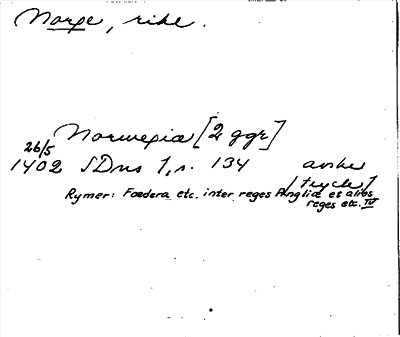 Norge, rike.
Norwegiæ [2 ggr]
26/5
1402 SDns 1, s. 134 avskr
[tryck]
Rymer: Foedera etc. inter reges Angliæ et alios
reges etc. IV